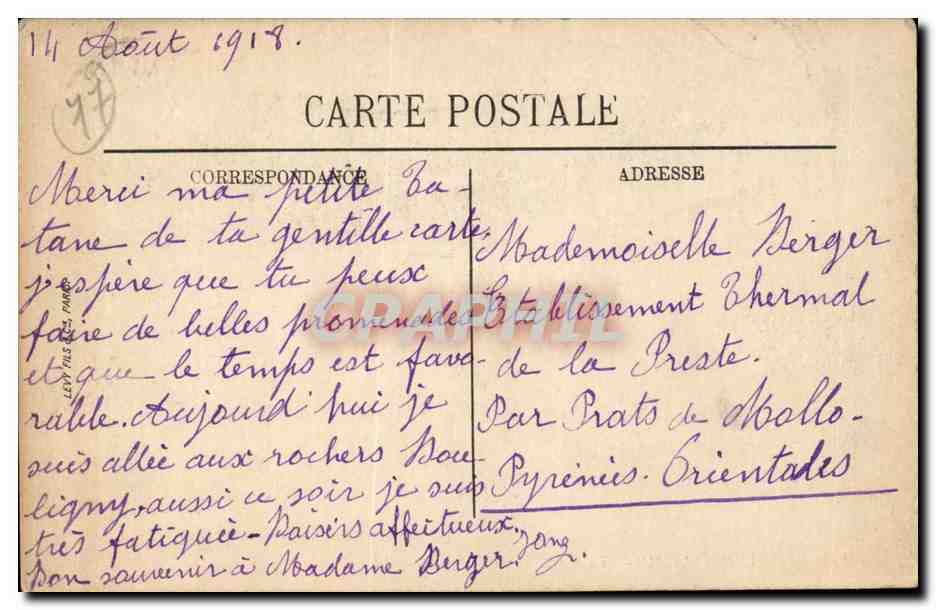 14 Août 1918.
77
CARTE POSTALE
CORRESPONDANCE
Merci ma petite Ta-
tane de ta gentille carte,
j'espère que tu peux
faire de belles promenades
et que le temps est favo-
rable. Aujourd'hui je
suis allée aux rochers Bou-
ligny, aussi ce soir je suis
très fatiguée - Baisers affectueux.
Bon souvenir à Madame Berger.
ADRESSE
Mademoiselle Berger
Etablissement Thermal
de la Preste.
Par Prats de Mollo-
Pyrénées-Orientales
LEVY FILS & Cie, PARIS
CARTE POSTALE
GRAPHIL